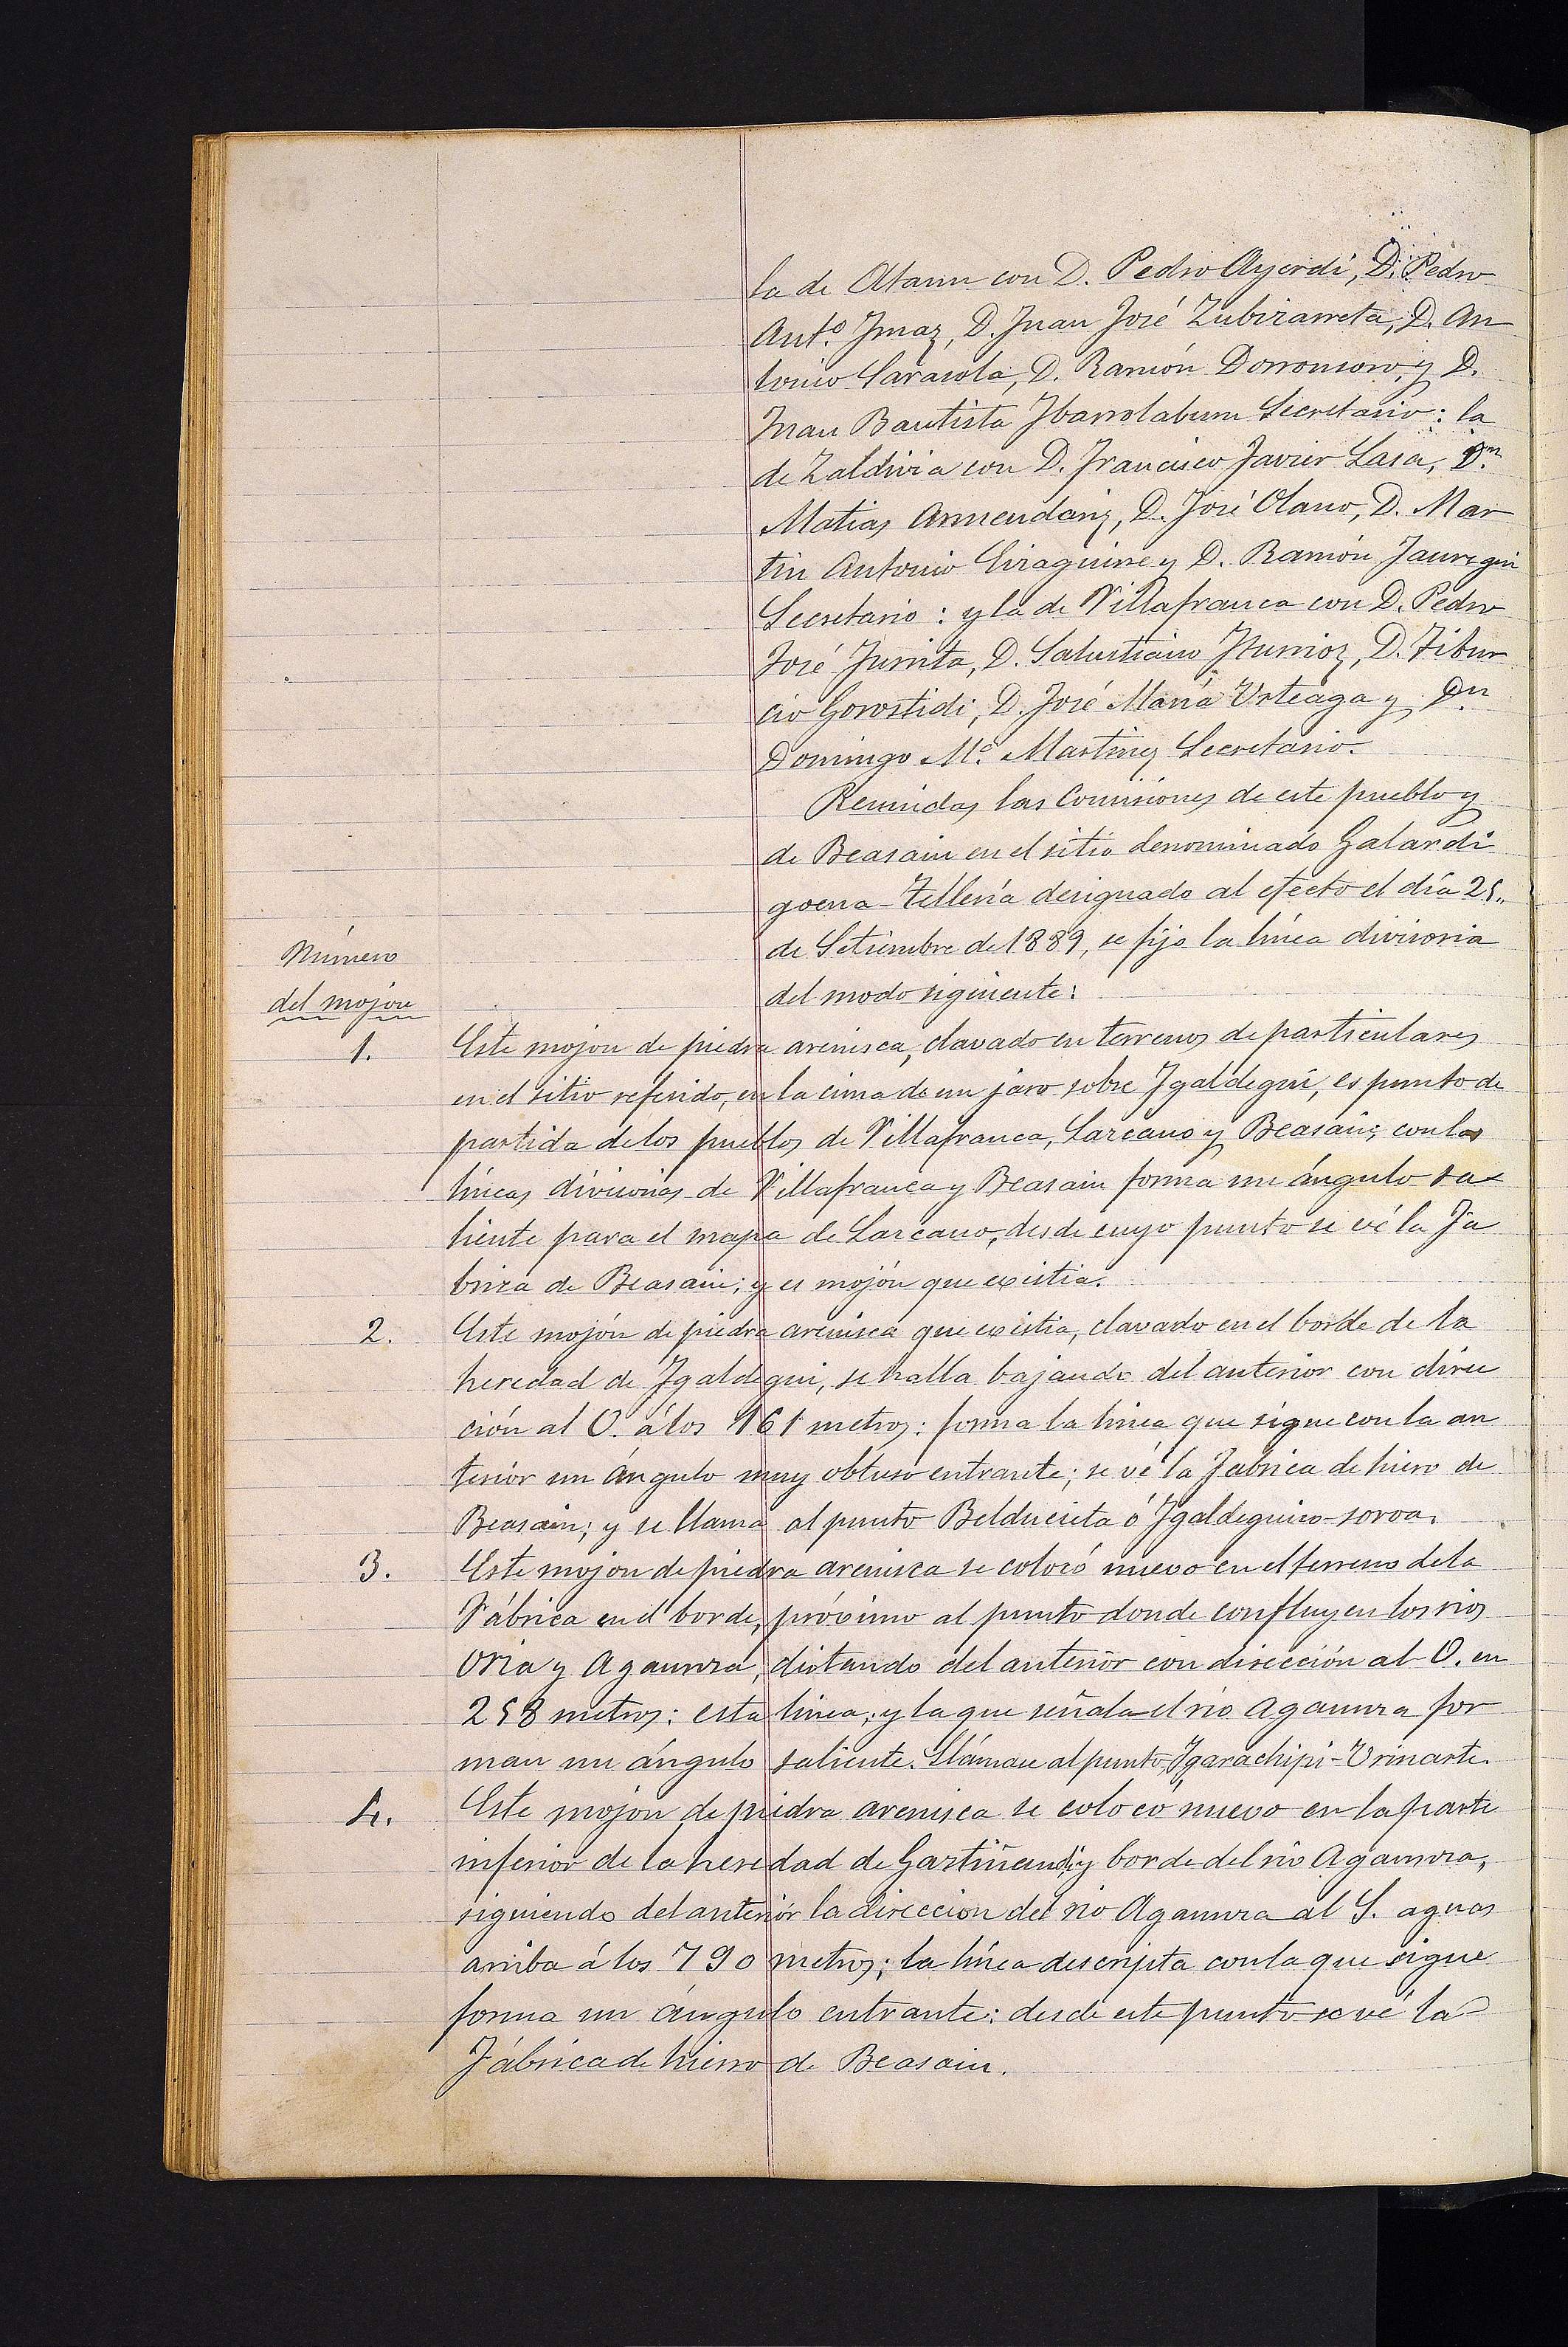 la de Ataun con D. Pedro Ayerdi, D. Pedro
Antº. Ymaz, D. Juan José Zubizarreta, D. An
tonio Sarasola, D. Ramón Dorronsoro, y D.
Juan Bautista Ybarrolaburu Secretario: la
de Zaldivia con D. Francisco Javier Lasa, Dⁿ.
Matias Armendariz, D. José Olano, D. Mar
tin Antonio Eizaguirre y D. Ramón Jauregui
Secretario: y la de Villafranca con D. Pedro
José Yurrita, D. Salustiano Yturrioz, D. Tibur
cio Gorostidi, D. José María Urteaga y Dⁿ.
Domingo Mª. Martinez Secretario.
Reunidas las Comisiones de este pueblo y
de Beasain en el sitio denominado Galardi
goena-Tellería designado al efecto el día 25.,
de Setiembre de 1889, se fijo la línea divisoria
del modo siguiente:
Número
del mojon
1. Este mojon de piedra arenisca, clavado en terrenos de particulares
en el sitio referido, en la cima de un jaro sobre Ygaldegui, es punto de
partida de los pueblos de Villafranca, Lazcano y Beasain; con las
líneas divisorias de Villafranca y Beasain forma un ángulo sa-
liente para el mapa de Lazcano, desde cuyo punto se vé la Fa
brica de Beasain; y es mojón que existia.
2. Este mojón de piedra arenisca que existia, clavado en el borde de la
heredad de Ygaldegui, se halla bajando del anterior con direc
ción al O. á los 161 metros: forma la linea que sigue con la an
terior un ángulo muy obtuso entrante; se vé la Fabrica de hierro de
Beasain; y se llama al punto Belducieta ó Ygaldeguico-soroa.
3. Este mojon de piedra arenisca se colocó nuevo en el terreno de la
Fábrica en el borde, próximo al punto donde confluyen los rios
Oria y Agaunza, distando del anterior con dirección al O. en
258 metros: esta linea, y la que señala el rio Agaunza for
man un ángulo saliente. Llámase al punto, Ygarachipi-Urinarte.
4. Este mojon de piedra arenisca se colocó nuevo en la parte
inferior de la heredad de Gaztiñandi, y borde del rio Agaunza,
siguiendo del anteriór la direccion del rio Agaunza al S. aguas
arriba á los 790 metros; la línea descripta con la que sigue
forma un ángulo entrante: desde este punto se vé la
Fábrica de hierro de Beasain.